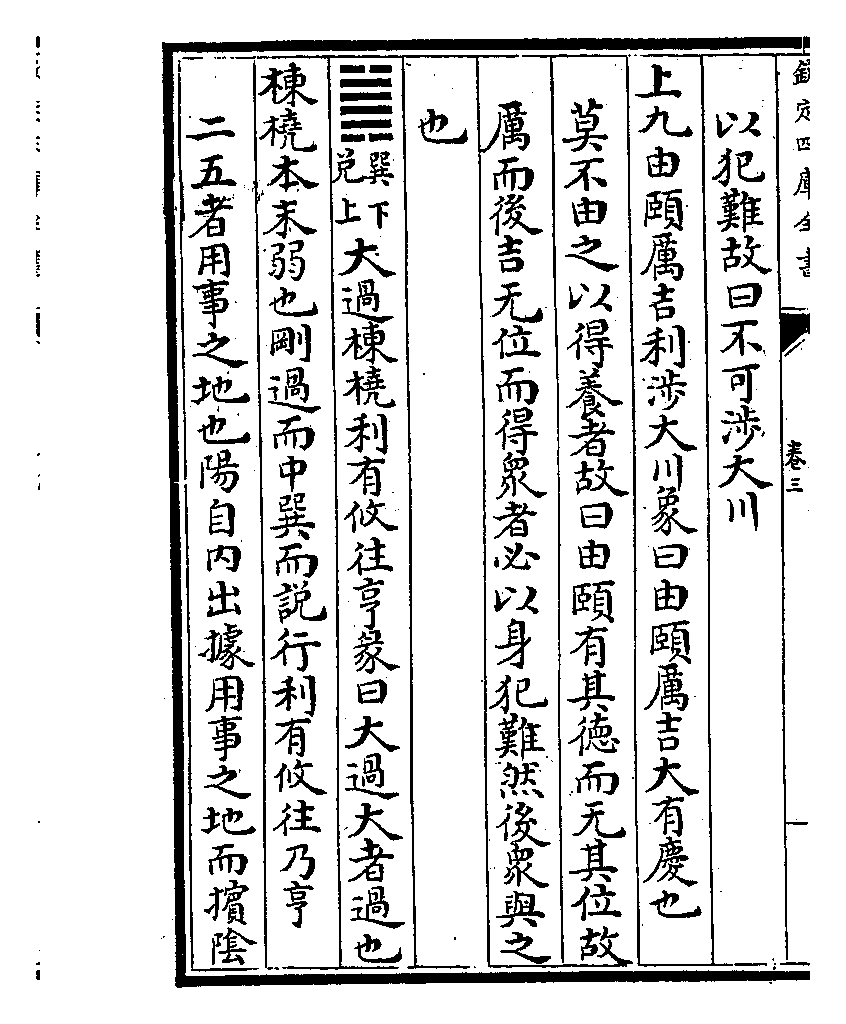 欽定四庫全書
卷三
以犯難故曰不可涉大川
上九由頤厲吉利涉大川象曰由頤厲吉大有慶也
莫不由之以得養者故曰由頤有其徳而无其位故
厲而後吉无位而得衆者必以身犯難然後衆與之
也
䷛巽下兑上大過棟橈利有攸往亨彖曰大過大者過也
棟橈本末弱也剛過而中巽而説行利有攸往乃亨
二五者用事之地也陽自内出據用事之地而擯陰